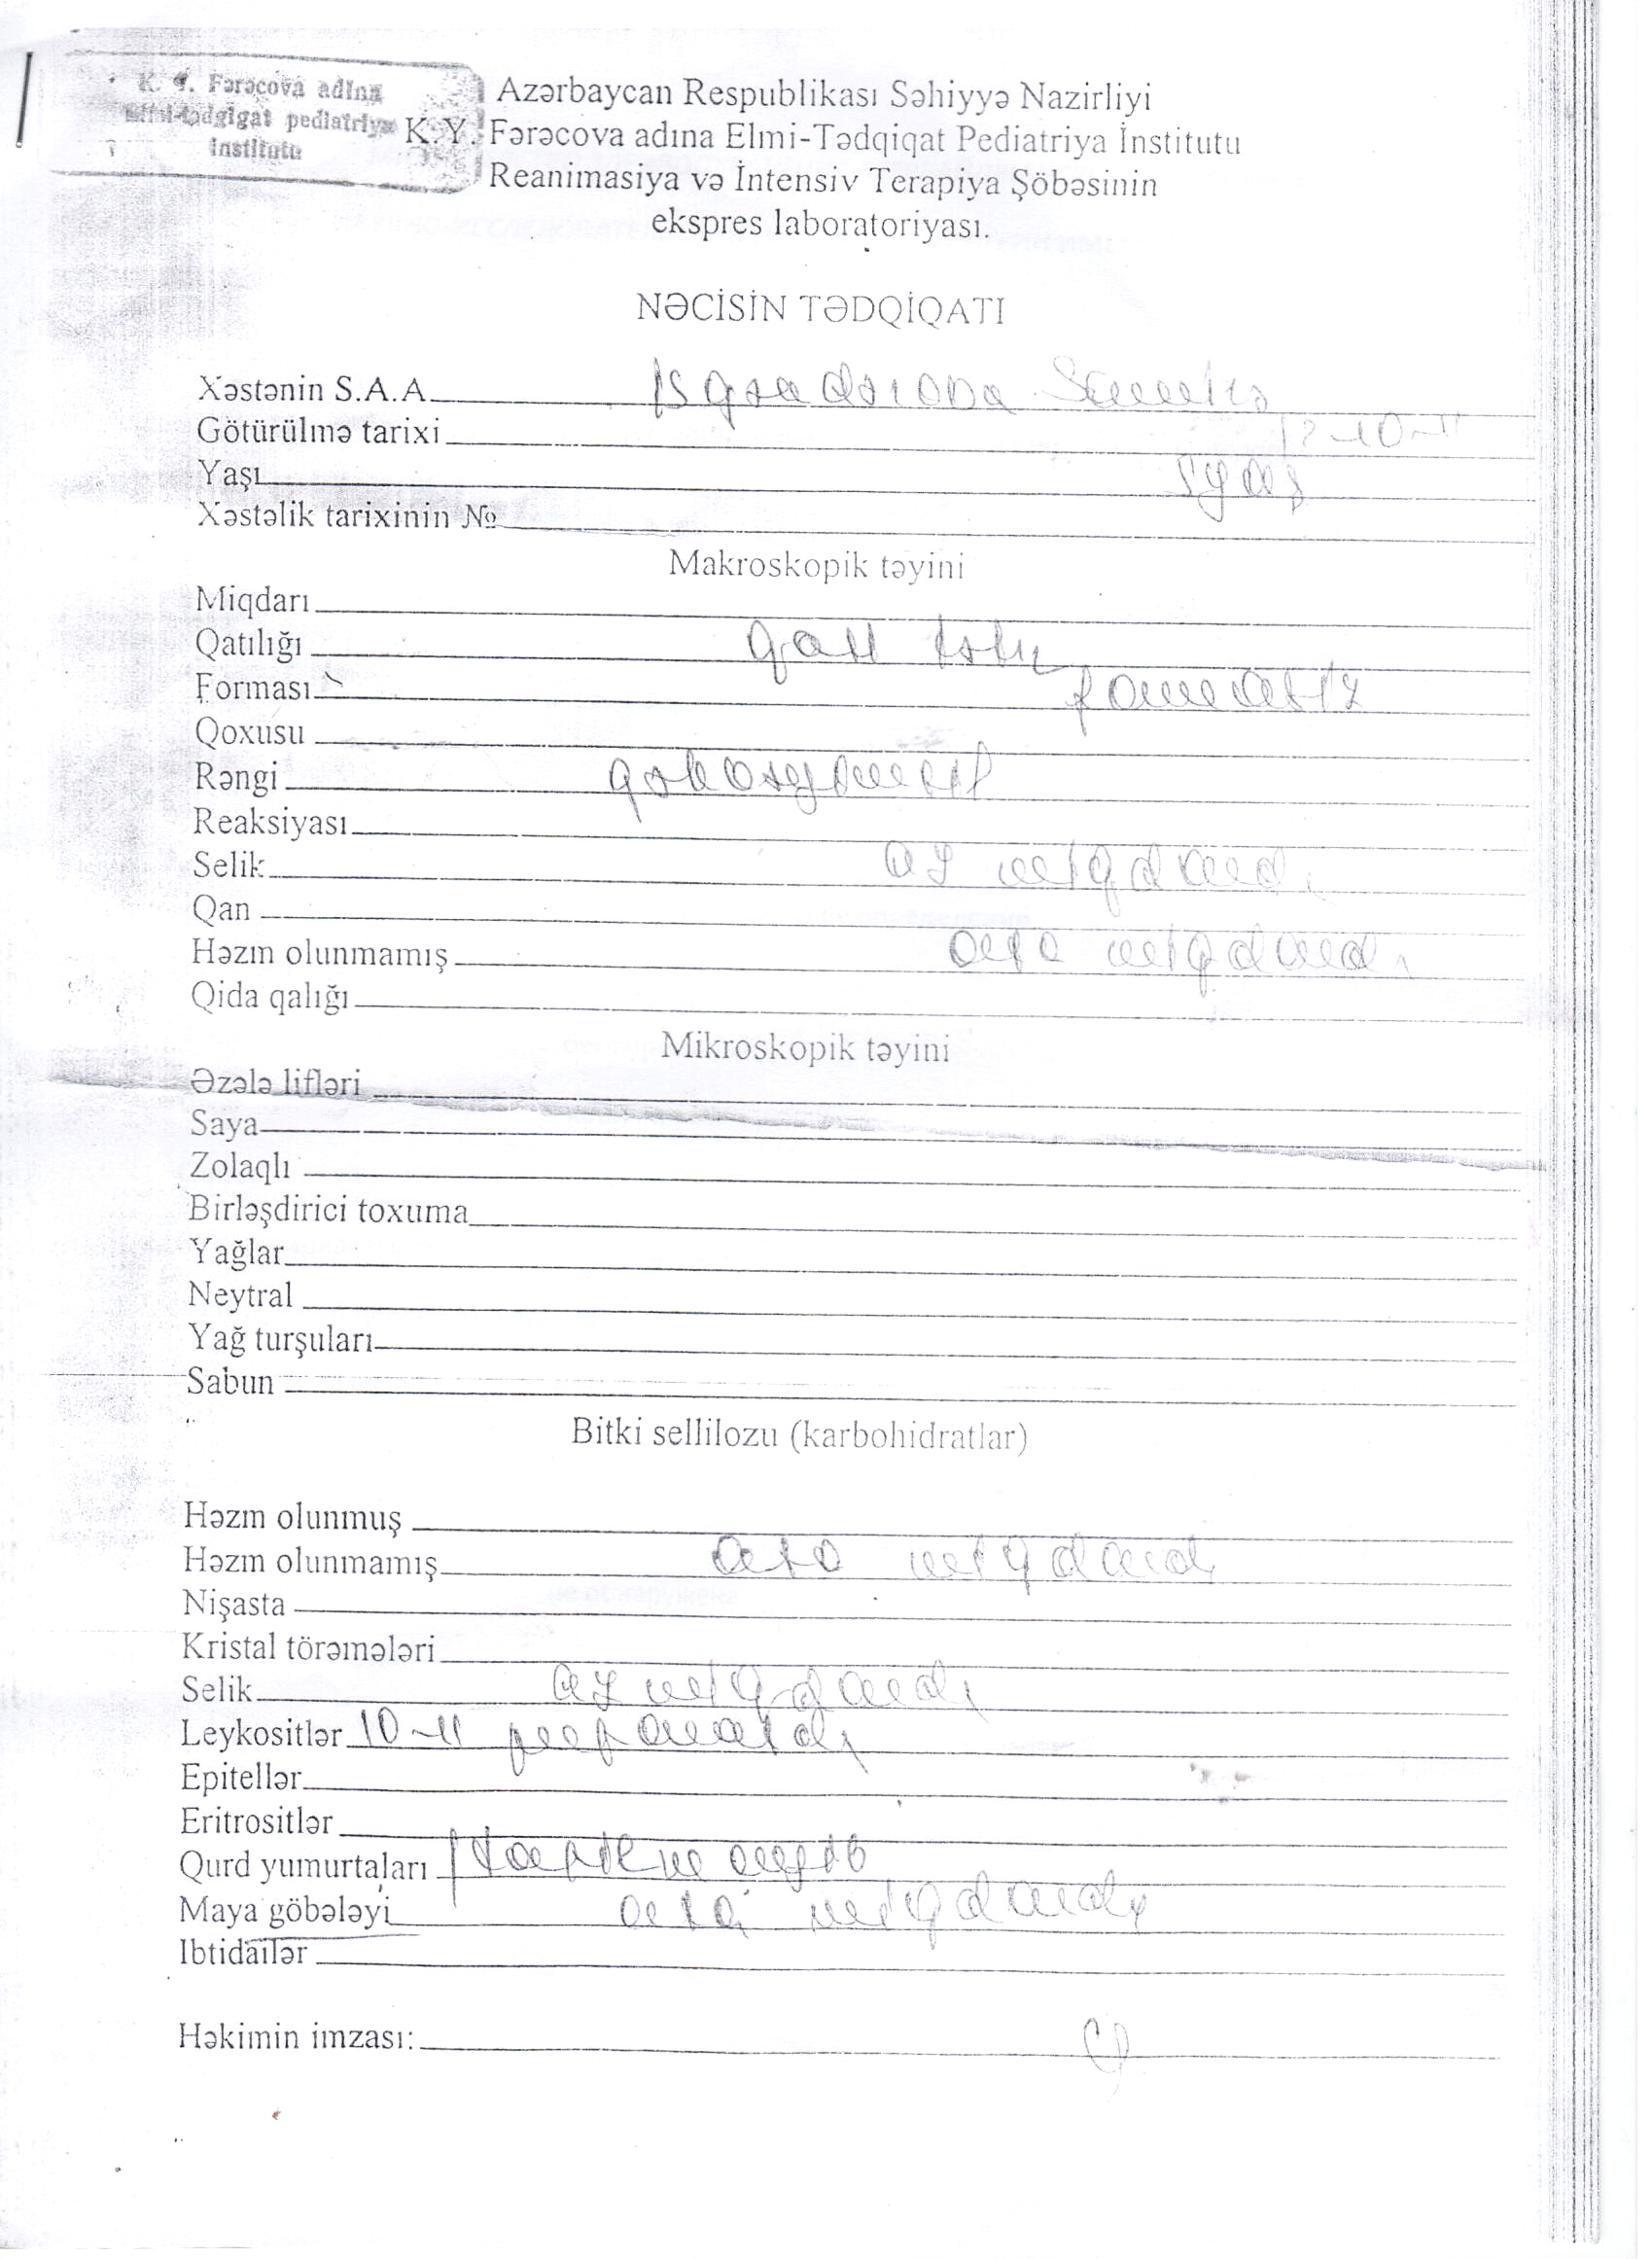 K. Y. Fərəcova adına
elmi-tədgigat pediatriya
institutu
Azərbaycan Respublikası Səhiyyə Nazirliyi
K.Y. Fərəcova adına Elmi-Tədqiqat Pediatriya İnstitutu
Reanimasiya və İntensiv Terapiya Şöbəsinin
ekspres laboratoriyası.
NƏCİSİN TƏDQİQATI
Xəstənin S.A.A
Götürülmə tarixi
Yaşı 5 yaş
Xəstəlik tarixinin №
Makroskopik təyini
Miqdarı
Qatılığı qatı
Forması formasız
Qoxusu
Rəngi
Reaksiyası
Selik az miqdarda
Qan
Həzm olunmamış orta miqdarda
Qida qalığı
Mikroskopik təyini
Əzələ lifləri
Saya
Zolaqlı
Birləşdirici toxuma
Yağlar
Neytral
Yağ turşuları
Sabun
Bitki sellilozu (karbohidratlar)
Həzm olunmuş
Həzm olunmamış orta miqdarda
Nişasta
Kristal törəmələri
Selik az miqdarda
Leykositlər 10-11 preparatda
Epitellər
Eritrositlər
Qurd yumurtaları tapılmayıb
Maya göbələyi orta miqdarda
Ibtidailər
Həkimin imzası: